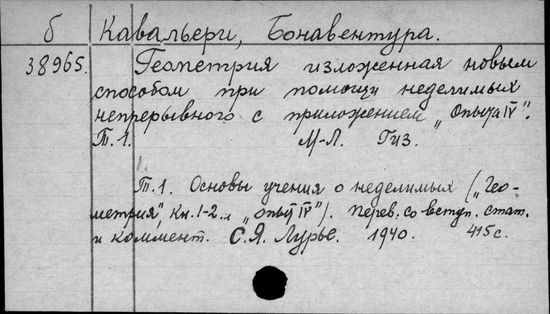 б Кавальери, Бонавентура.
38965. Геометрия изложенная новым
способом при помощи неделимых
непрерывного с приложением „Опыта IV".
Т. 1. М-Л. Гиз.
Т. 1. Основы учения о неделимых („Гео-
метрия", кн. 1-2 и „Опыт IV"). Перев. со вступ. стат.
и коммент. С.Я. Лурье. 1940. 415 с.